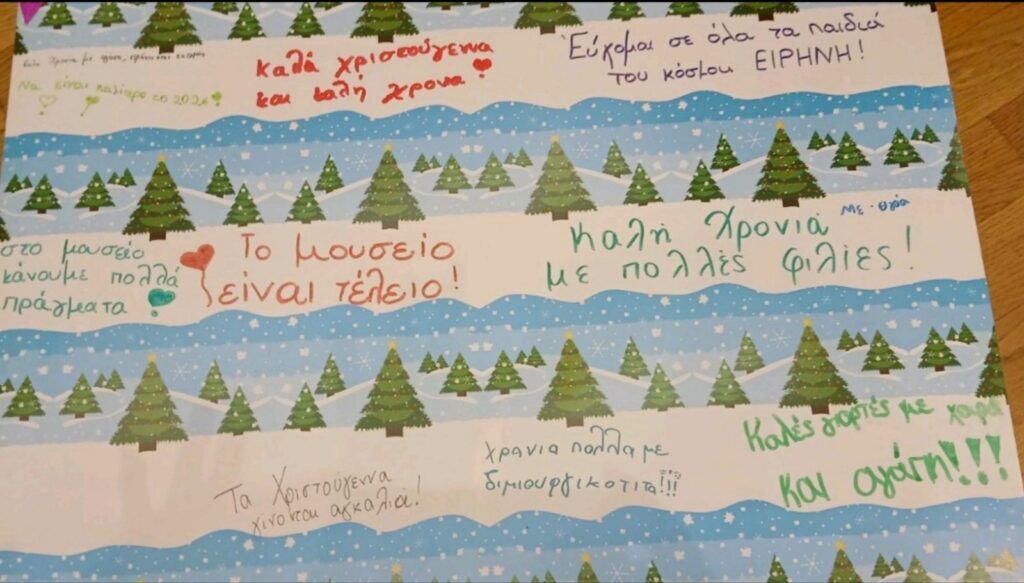 Καλή Χρονιά με αγάπη,
Να είναι καλύτερο το 2026!
Καλά χριστούγεννα
και καλή χρονια!
Εύχομαι σε όλα τα παιδιά
του κόσμου ΕΙΡΗΝΗ!
στο μουσείο
κάνουμε πολλά
πράγματα
Το μουσείο
είναι τέλειο!
Καλή Χρονιά
με πολλές φιλίες!
Τα Χριστούγεννα
χινονται αγκαλιά!
χρονια πολλα με
διμιουργικοτιτα!!!
Καλές γιορτές με χαρά
και αγάπη!!!